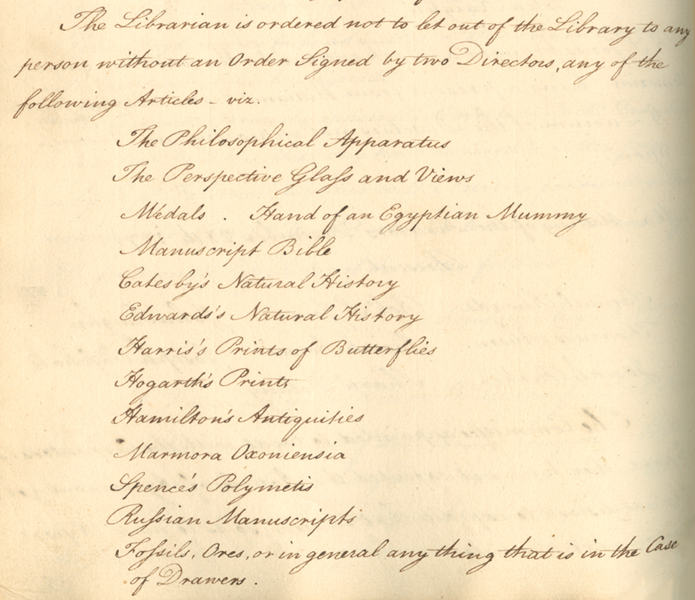 The Librarian is ordered not to let out of the Library to any
person without an Order Signed by two Directors, any of the
following Articles - viz.
The Philosophical Apparatus
The Perspective Glass and Views
Medals . Hand of an Egyptian Mummy
Manuscript Bible
Catesby's Natural History
Edwards's Natural History
Harris's Prints of Butterflies
Hogarth's Prints
Hamilton's Antiquities
Marmora Oxoniensia
Spence's Polymetis
Russian Manuscripts
Fossils, Ores, or in general any thing that is in the Case
of Drawers .